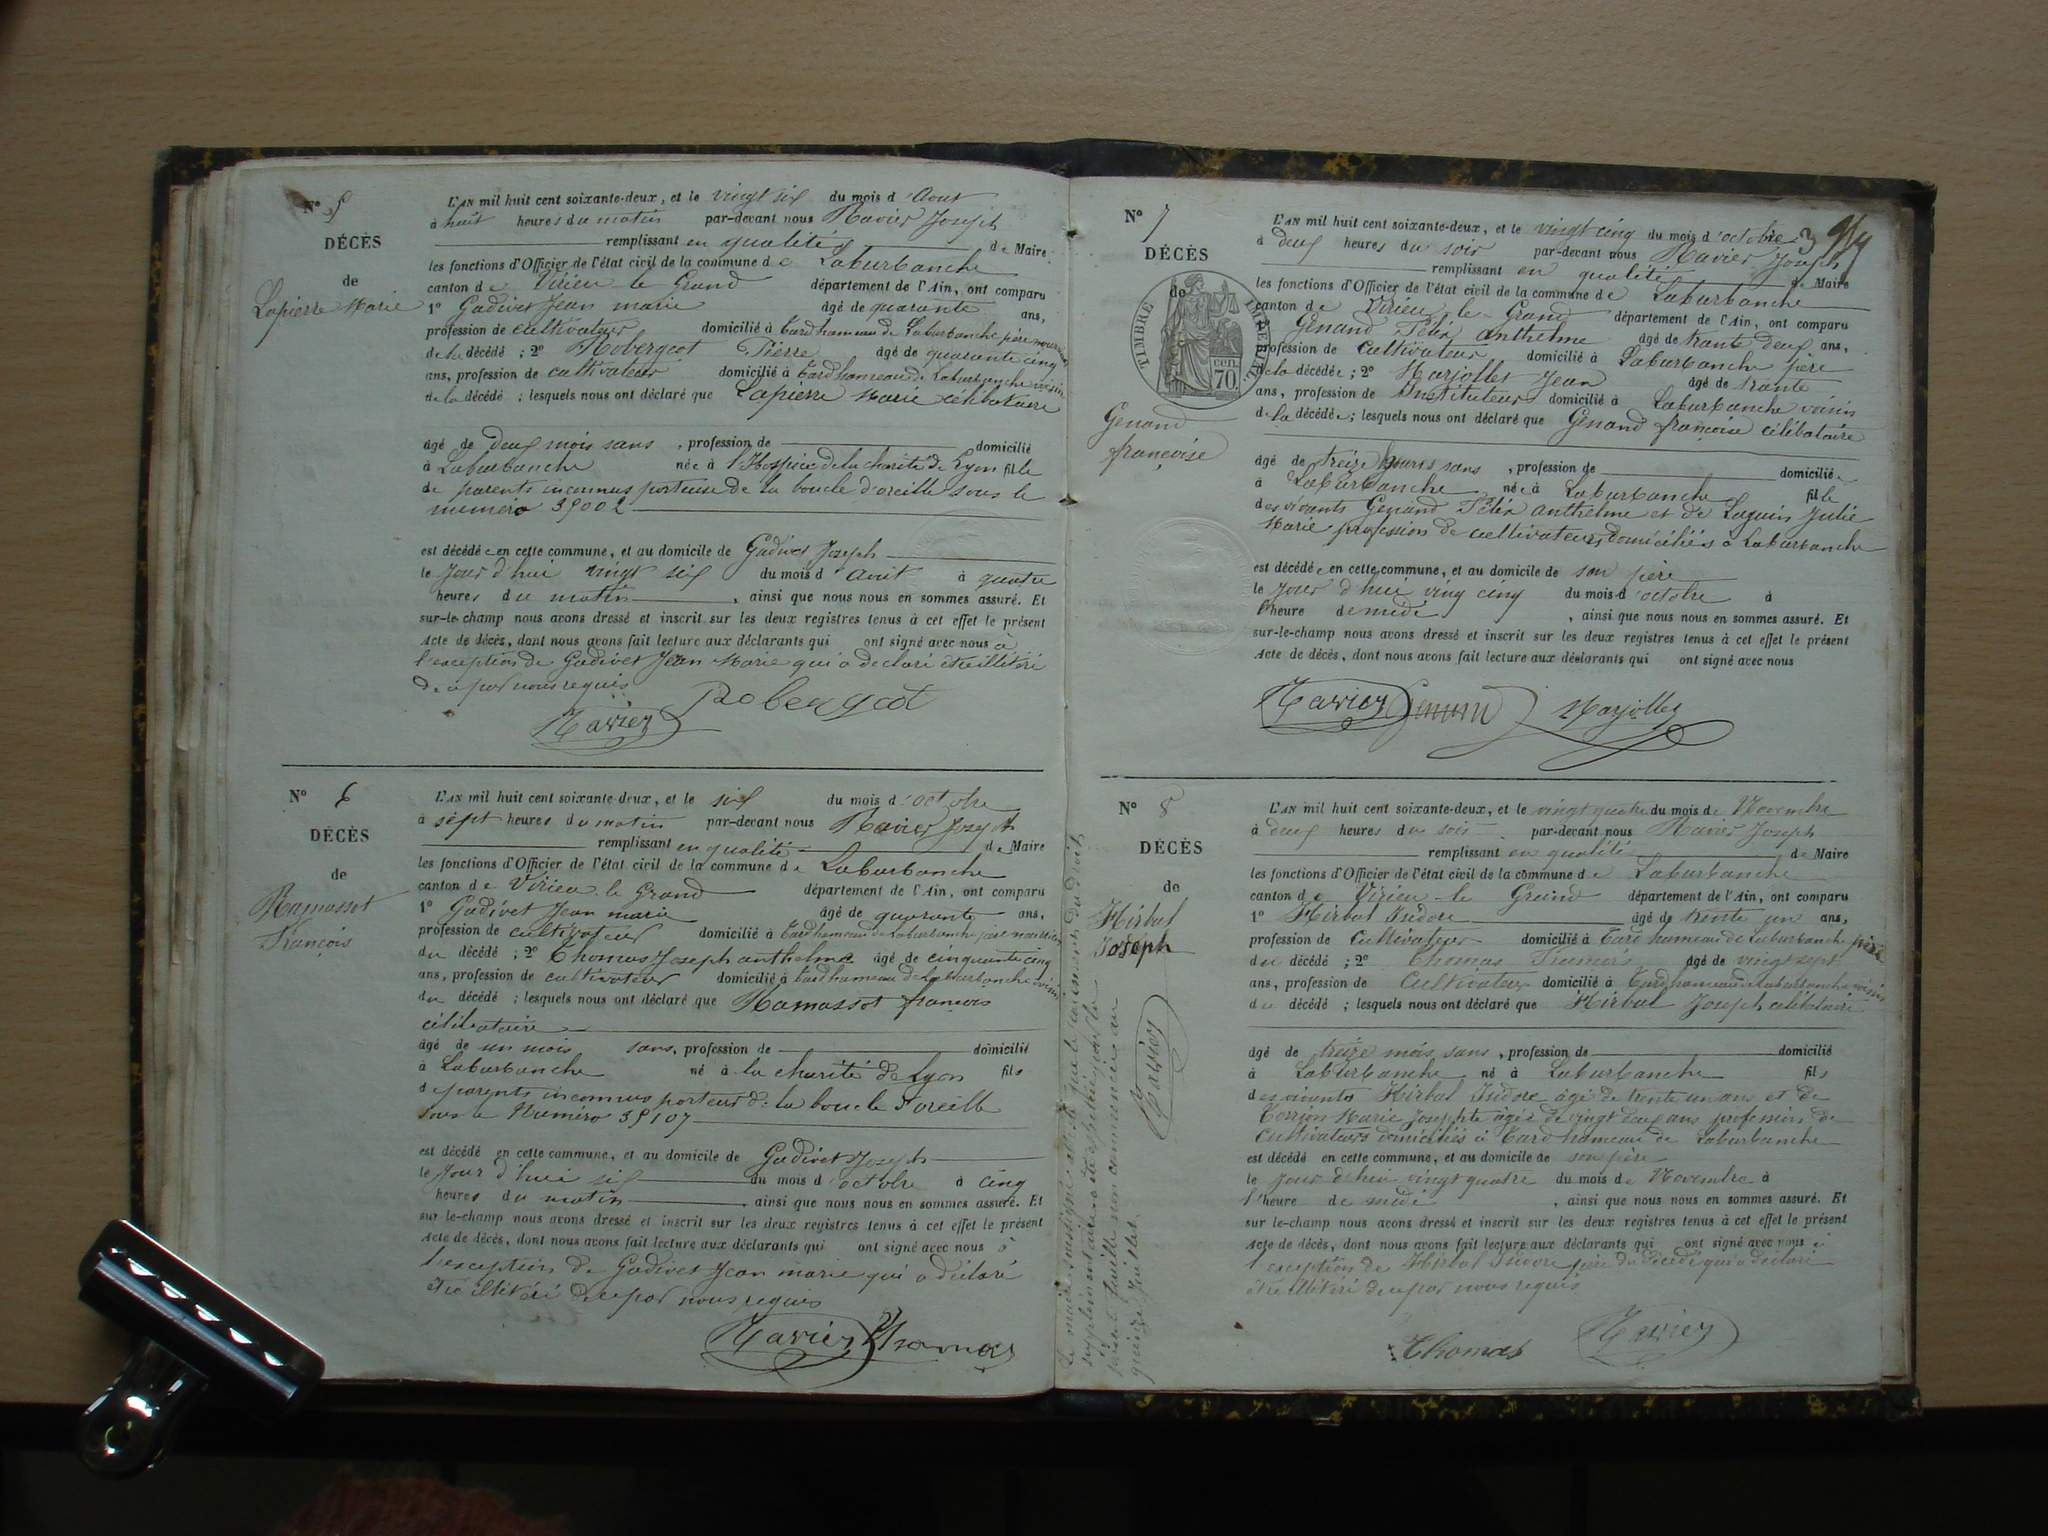 N° 5
DÉCÈS
de
Lapierre Marie
L'AN mil huit cent soixante-deux, et le vingt six du mois d'Aout
à huit heures du matin par-devant nous Ravier Joseph
remplissant en qualité de Maire
les fonctions d'Officier de l'état civil de la commune de Laburbanche
canton de Virieu le Grand département de l'Ain, ont comparu
1° Gadivet Jean marie âgé de quarante ans,
profession de cultivateur domicilié à Tard hameau de Laburbanche père nourricier
de la décédé ; 2° Robergeot Pierre âgé de quarante cinq
ans, profession de cultivateur domicilié à Tard hameau de Laburbanche voisin
de la décédé ; lesquels nous ont déclaré que Lapierre Marie célibataire
âgé de deux mois sans , profession de domicilié
à Laburbanche née à l'Hospice de la charité de Lyon fille
de parents inconnus porteuse de la boucle d'oreille sous le
numéro 35002
est décédée en cette commune, et au domicile de Gadivet Joseph
le Jour d'hui vingt six du mois d'aout à quatre
heures du matin , ainsi que nous nous en sommes assuré. Et
sur-le-champ nous avons dressé et inscrit sur les deux registres tenus à cet effet le présent
Acte de décès, dont nous avons fait lecture aux déclarants qui ont signé avec nous à
l'exception de Gadivet Jean Marie qui a déclaré être illitéré
de ce par nous requis
Robergeot
Ravier
N° 6
DÉCÈS
de
Ramassot
François
L'AN mil huit cent soixante-deux, et le six du mois d'octobre
à sept heures du matin par-devant nous Ravier Joseph
remplissant en qualité de Maire
les fonctions d'Officier de l'état civil de la commune de Laburbanche
canton de Virieu le Grand département de l'Ain, ont comparu
1° Gadivet Jean marie âgé de quarante ans,
profession de cultivateur domicilié à Tard hameau de Laburbanche père nourricier
du décédé ; 2° Thomas Joseph anthelme âgé de cinquante cinq
ans, profession de cultivateur domicilié à Tard hameau de Laburbanche voisin
du décédé ; lesquels nous ont déclaré que Ramassot françois
célibataire
âgé de un mois sans, profession de domicilié
à Laburbanche né à la charité de Lyon fils
de parents inconnus porteur de la boucle d'oreille
sous le Numéro 35107
est décédé en cette commune, et au domicile de Gadivet Joseph
le Jour d'hui six du mois d'octobre à cinq
heures du matin , ainsi que nous nous en sommes assuré. Et
sur le-champ nous avons dressé et inscrit sur les deux registres tenus à cet effet le présent
Acte de décès, dont nous avons fait lecture aux déclarants qui ont signé avec nous à
l'exception de Gadivet Jean marie qui a déclaré
être illitéré de ce par nous requis
Ravier Thomas
N° 7
DÉCÈS
de
TIMBRE IMPÉRIAL
cen.
70.
Genand
françoise
L'AN mil huit cent soixante-deux, et le vingt cinq du mois d'octobre
à deux heures du soir par-devant nous Ravier Joseph
remplissant en qualité de Maire
les fonctions d'Officier de l'état civil de la commune de Laburbanche
canton de Virieu le Grand département de l'Ain, ont comparu
Genand Félix anthelme âgé de trante deux ans,
profession de cultivateur domicilié à Laburbanche père
de la décédée ; 2° Marjollet Jean âgé de trante
ans, profession de Instituteur domicilié à Laburbanche voisin
de la décédée ; lesquels nous ont déclaré que Genand françoise célibataire
âgé de treize jours sans , profession de domiciliée
à Laburbanche née à Laburbanche fille
des vivants Genand Félix anthelme et de Laguin Julie
Marie profession de cultivateurs domiciliés à Laburbanche
est décédée en cette commune, et au domicile de son père
le Jour d'hui ving cinq du mois d'octobre à
l'heure de midi , ainsi que nous nous en sommes assuré. Et
sur-le-champ nous avons dressé et inscrit sur les deux registres tenus à cet effet le présent
Acte de décès, dont nous avons fait lecture aux déclarants qui ont signé avec nous
Ravier Genand Marjollet
N° 8
DÉCÈS
de
Hirbal
Joseph
L'AN mil huit cent soixante-deux, et le vingt quatre du mois de Novembre
à deux heures du soir par-devant nous Ravier Joseph
remplissant en qualité de Maire
les fonctions d'Officier de l'état civil de la commune de Laburbanche
canton de Virieu le Grand département de l'Ain, ont comparu
1° Hirbal Isidore âgé de trente un ans,
profession de Cultivateur domicilié à Tard hameau de Laburbanche père
du décédé ; 2° Thomas âgé de vingt sept
ans, profession de Cultivateur domicilié à Tard hameau de Laburbanche voisin
du décédé ; lesquels nous ont déclaré que Hirbal Joseph célibataire
âgé de treize mois sans , profession de domicilié
à Laburbanche né à Laburbanche fils
des vivants Hirbal Isidore âgé de trente un ans et de
Marie Josephte âgée de vingt deux ans profession de
cultivateurs domiciliés à Tard hameau de Laburbanche
est décédé en cette commune, et au domicile de son père
le Jour d'hui vingt quatre du mois de Novembre à
l'heure de midi , ainsi que nous nous en sommes assuré. Et
sur-le-champ nous avons dressé et inscrit sur les deux registres tenus à cet effet le présent
Acte de décès, dont nous avons fait lecture aux déclarants qui ont signé avec nous à
l'exception de Hirbal Isidore père du décédé qui a déclaré
être illitéré de ce par nous requis
Thomas Ravier
Le maire soussigné
Ravier